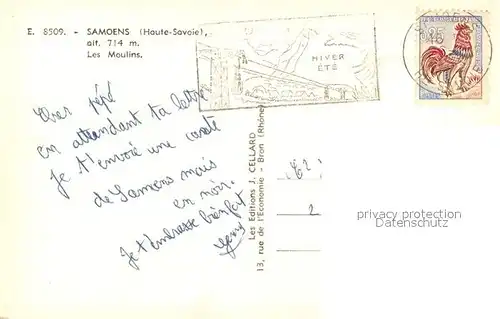 E. 8509. - SAMOENS (Haute-Savoie),
alt. 714 m.
Les Moulins.
HIVER
ÉTÉ
Cher pépé
en attendant ta lettre
Je t'envoie une carte
de Samoens mais
en noir.
Je t'embrasse bien fort
Les Editions J. CELLARD
13, rue de l'Economie - Bron (Rhône)
2
privacy protection
Datenschutz